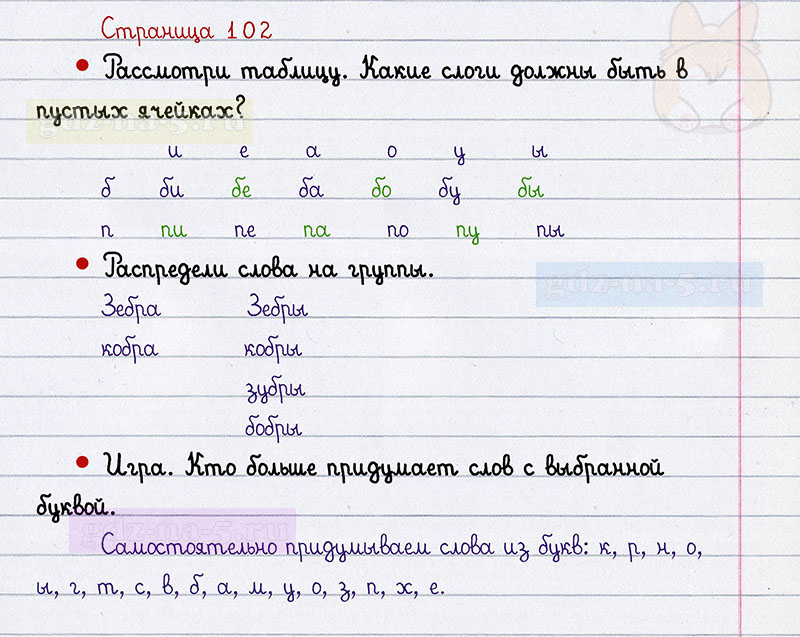 Страница 102
• Рассмотри таблицу. Какие слоги должны быть в
пустых ячейках?
gdz-na-5.ru
и е а о у ы
б би бе ба бо бу бы
п пи пе па по пу пы
• Распредели слова на группы.
gdz-na-5.ru
Зебра Зебры
кобра кобры
зубры
бобры
• Игра. Кто больше придумает слов с выбранной
буквой.
gdz-na-5.ru
Самостоятельно придумываем слова из букв: к, р, н, о,
ы, г, т, с, в, б, а, м, у, о, з, п, х, е.